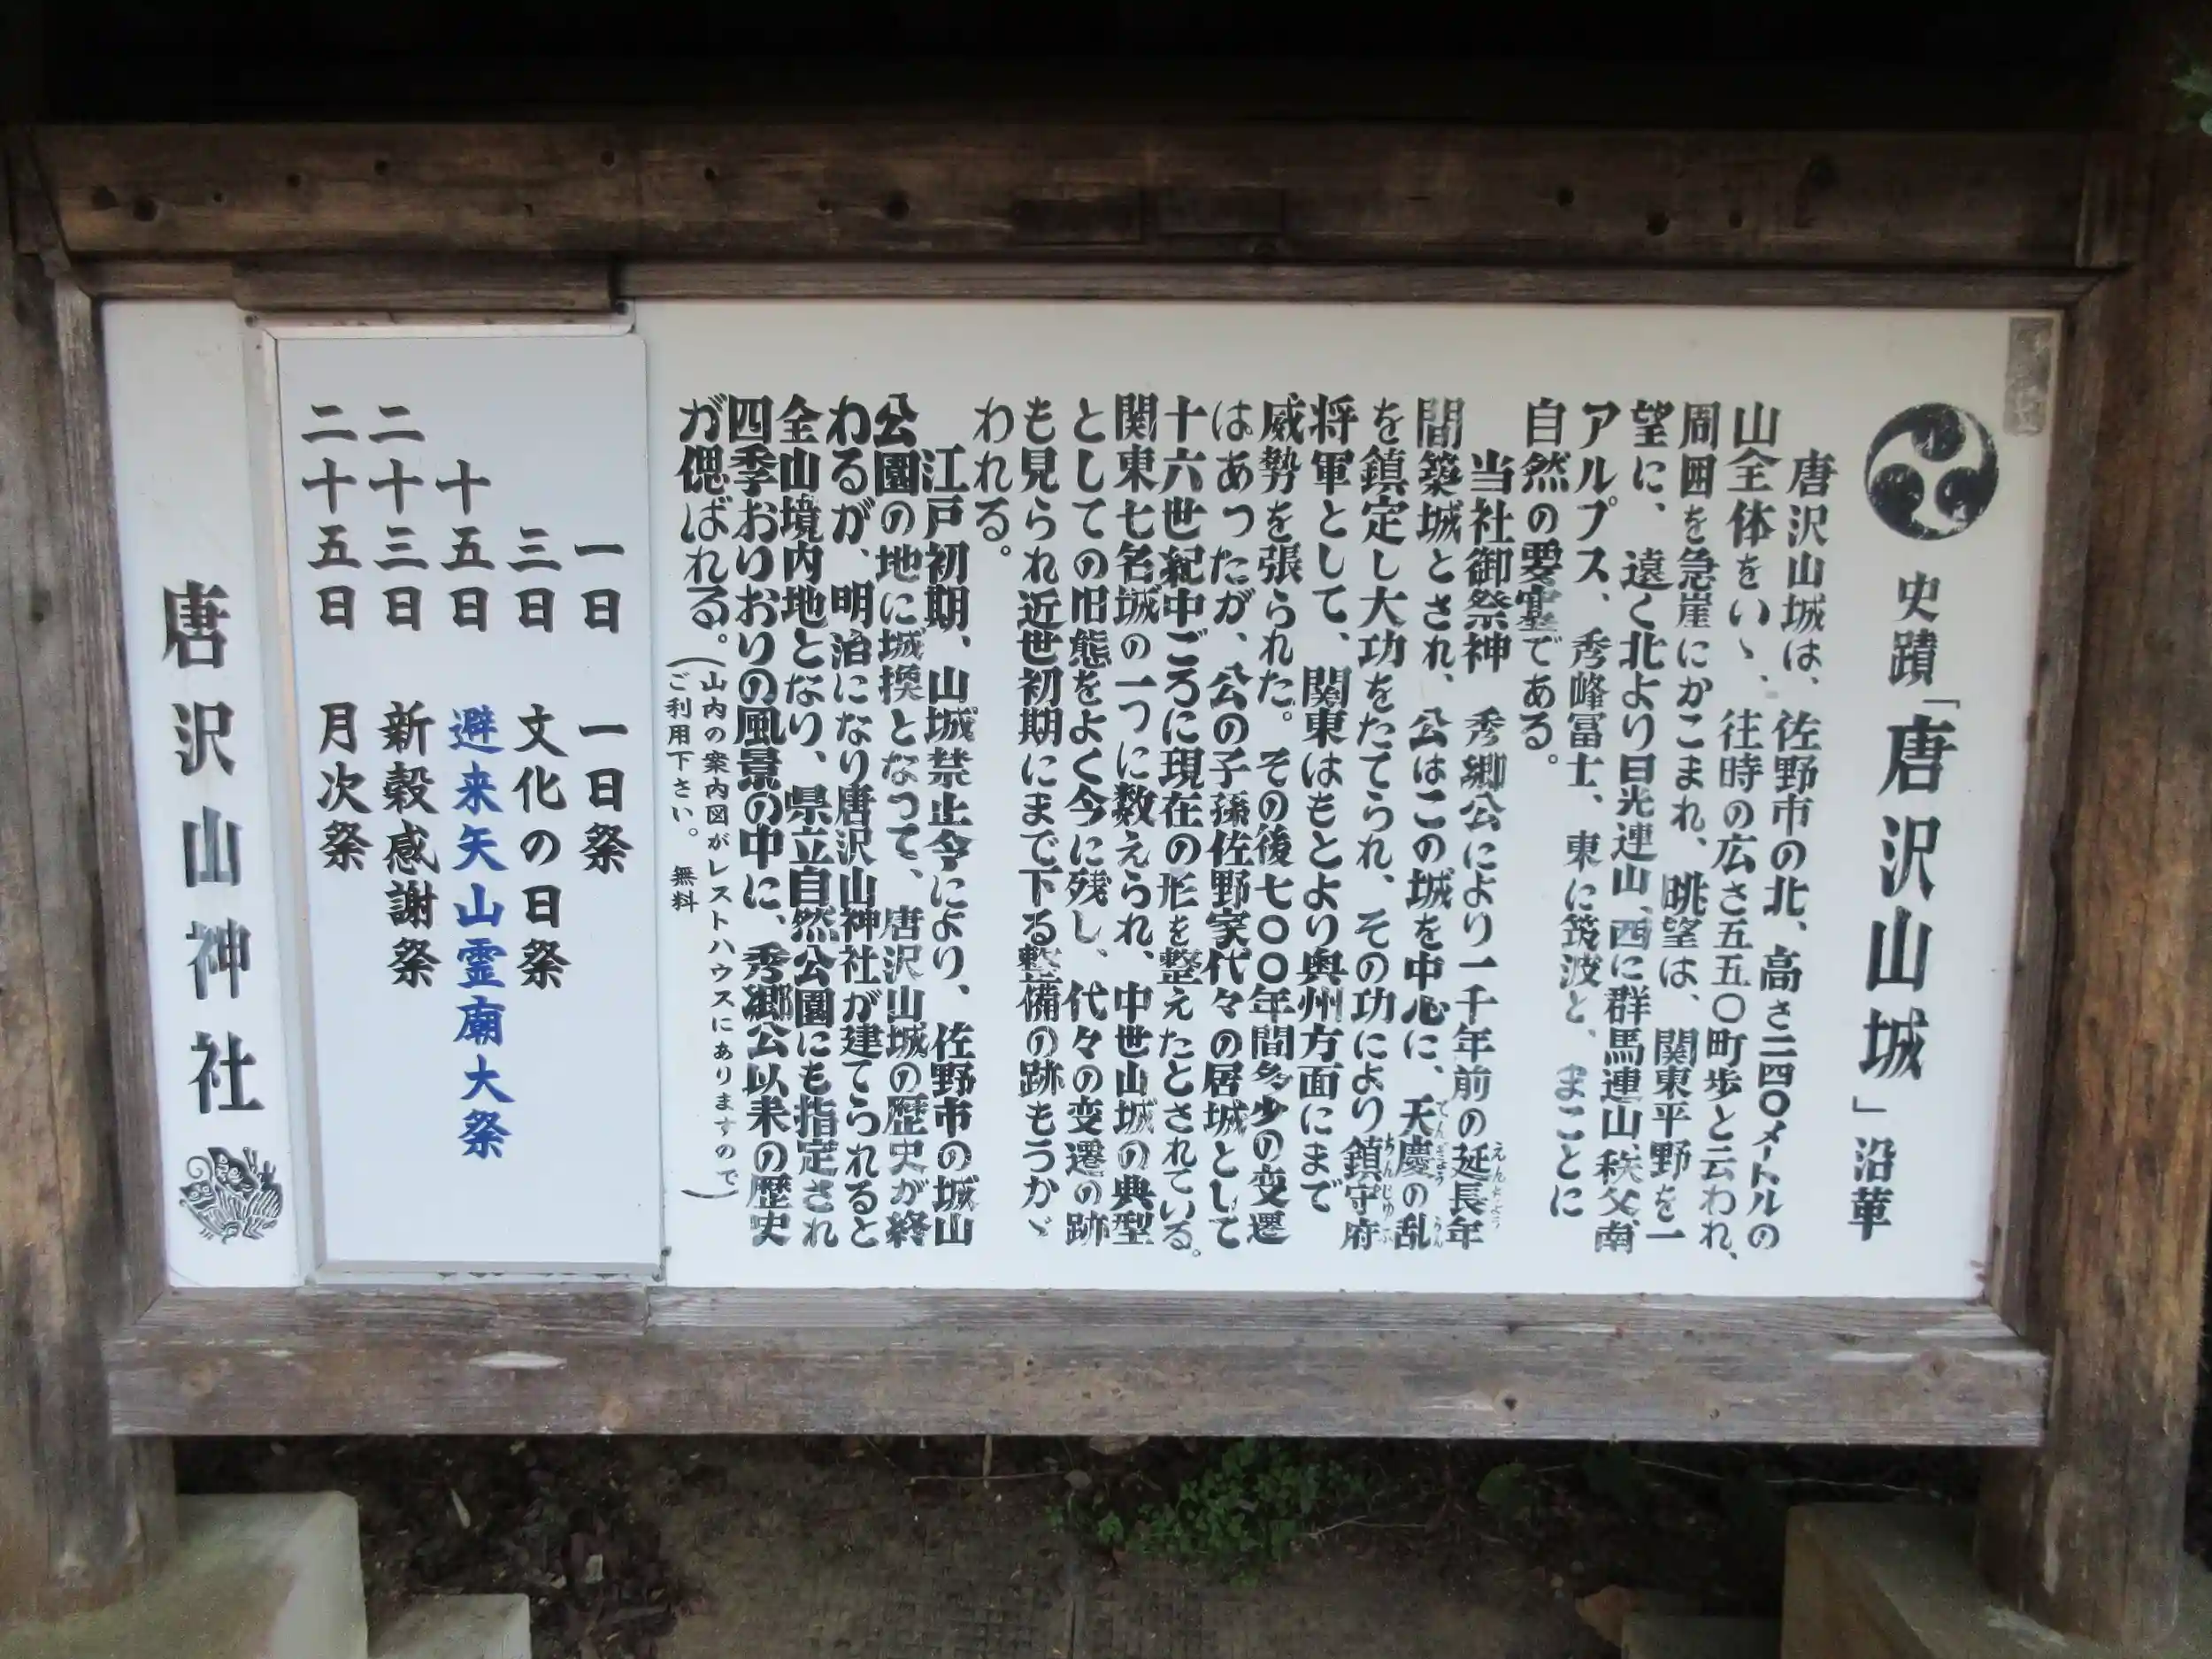 史蹟「唐沢山城」沿革
唐沢山城は、佐野市の北、高さ二四〇メートルの
山全体をいゝ、往時の広さ五五〇町歩と云われ、
周囲を急崖にかこまれ、眺望は、関東平野を一
望に、遠く北より日光連山、西に群馬連山、秩父、南
アルプス、秀峰冨士、東に筑波と、まことに
自然の要塞である。
当社御祭神 秀郷公により一千年前の延長年
えんちょう
間築城とされ、公はこの城を中心に、天慶の乱
てんぎょう らん
を鎮定し大功をたてられ、その功により鎮守府
ちんじゅふ
将軍として、関東はもとより奥州方面にまで
威勢を張られた。その後七〇〇年間多少の変遷
はあったが、公の子孫佐野家代々の居城として
十六世紀中ごろに現在の形を整えたとされている。
関東七名城の一つに数えられ、中世山城の典型
としての旧態をよく今に残し、代々の変遷の跡
も見られ近世初期にまで下る整備の跡もうかゞ
われる。
江戸初期、山城禁止令により、佐野市の城山
公園の地に城換となって、唐沢山城の歴史が終
わるが、明治になり唐沢山神社が建てられると
全山境内地となり、県立自然公園にも指定され
四季おりおりの風景の中に、秀郷公以来の歴史
が偲ばれる。
(山内の案内図がレストハウスにありますので
ご利用下さい。 無料)
一日 一日祭
三日 文化の日祭
十五日 避来矢山霊廟大祭
二十三日 新穀感謝祭
二十五日 月次祭
唐沢山神社